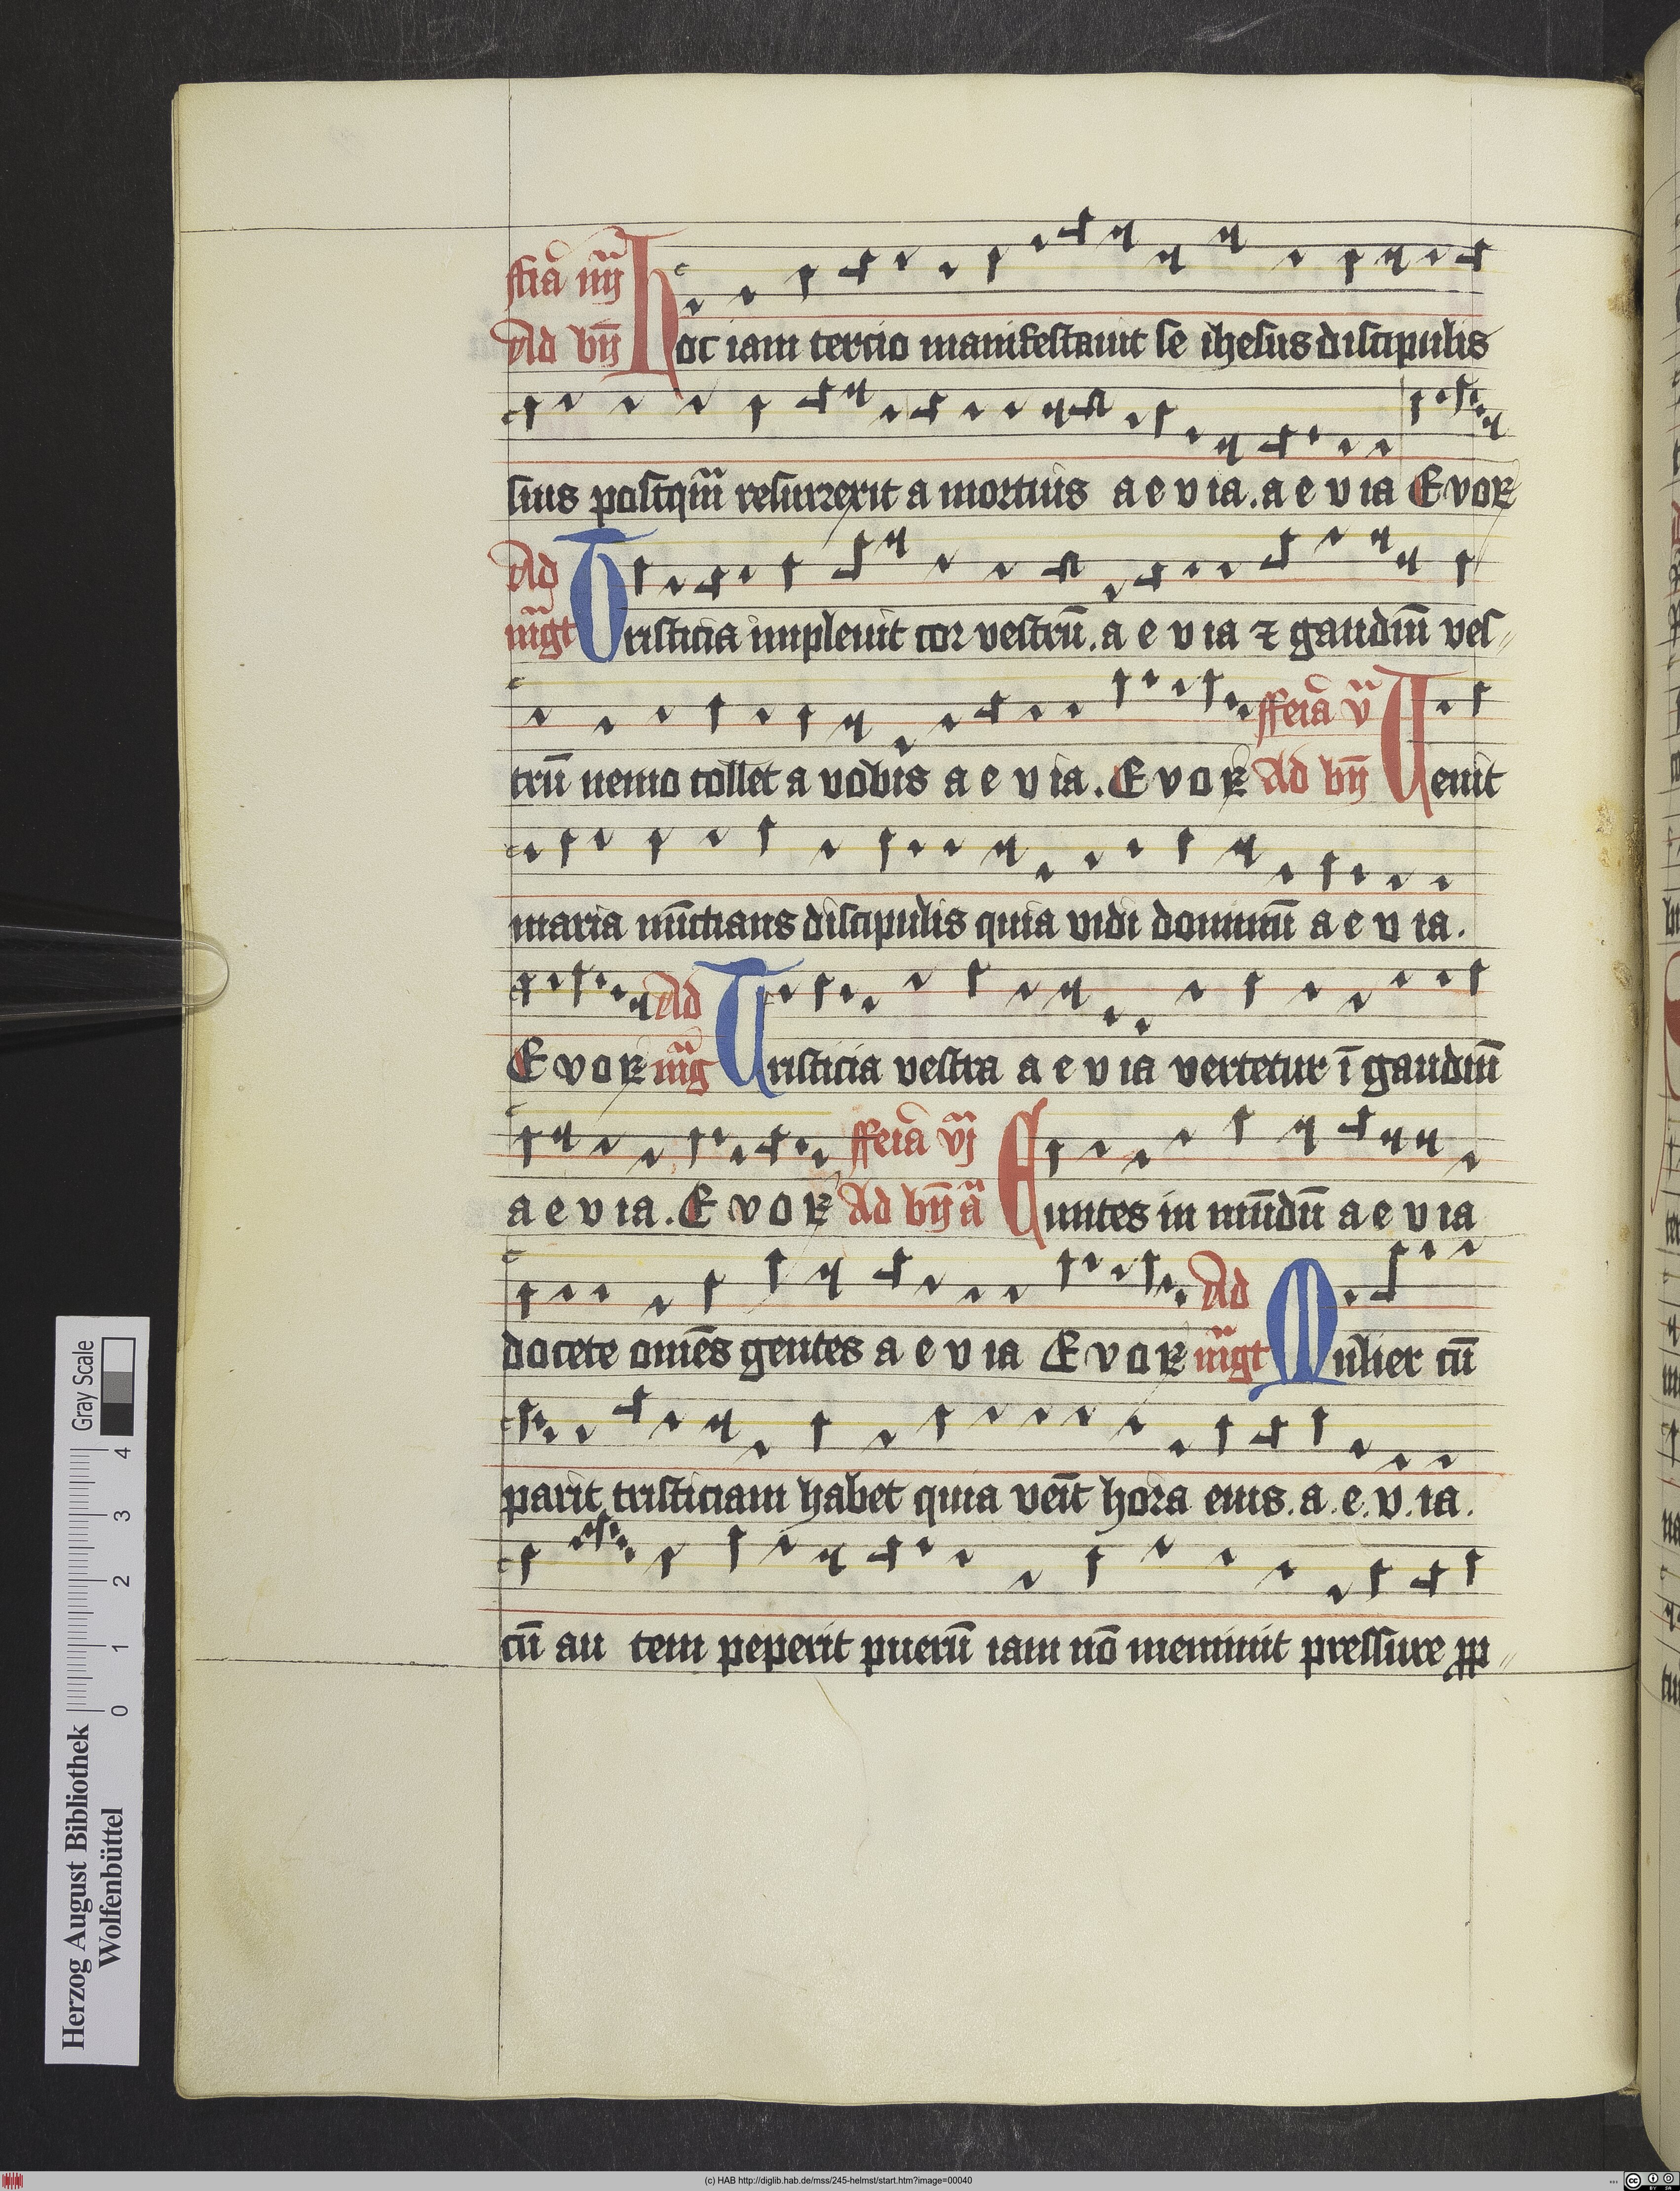 ffia͛ iiij
Ad bn̄ Hoc iam tercio manifestauit se ihesus discipulis
suis postqm̄ resurrexit a mortuis a e v ia . a e v ia E v o R
Ad
mg̅t Tristicia impleuit cor vestrū . a e v ia ⁊ gaudiū ves⸗
trū nemo tollet a vobis a e v ia . E v o R ffeia͛ v Ad bn̄ Venit
maria nūctians discipulis quia vidi dominū a e v ia .
E v o R Ad mg̅ Tristicia vestra a e v ia vertetur ī gaudiū
a e v ia . E v o R ffeia͛ vj Ad bn̄ a̅ Euntes in mūdū a e v ia
docete omēs gentes a e v ia E v o R Ad mg̅t Mulier cū
parit tristiciam habet quia veīt hora eius . a . e . v . ia .
cū au tem peperit puerū iam nō meminit pressure ꝓp⸗
Herzog August Bibliothek
Wolfenbüttel
0 1 2 3 4
Gray Scale
(c) HAB http://diglib.hab.de/mss/245-helmst/start.htm?image=00040